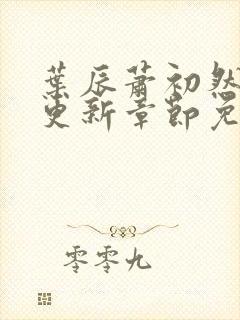 葉辰蕭初然
更新章節免
零零九